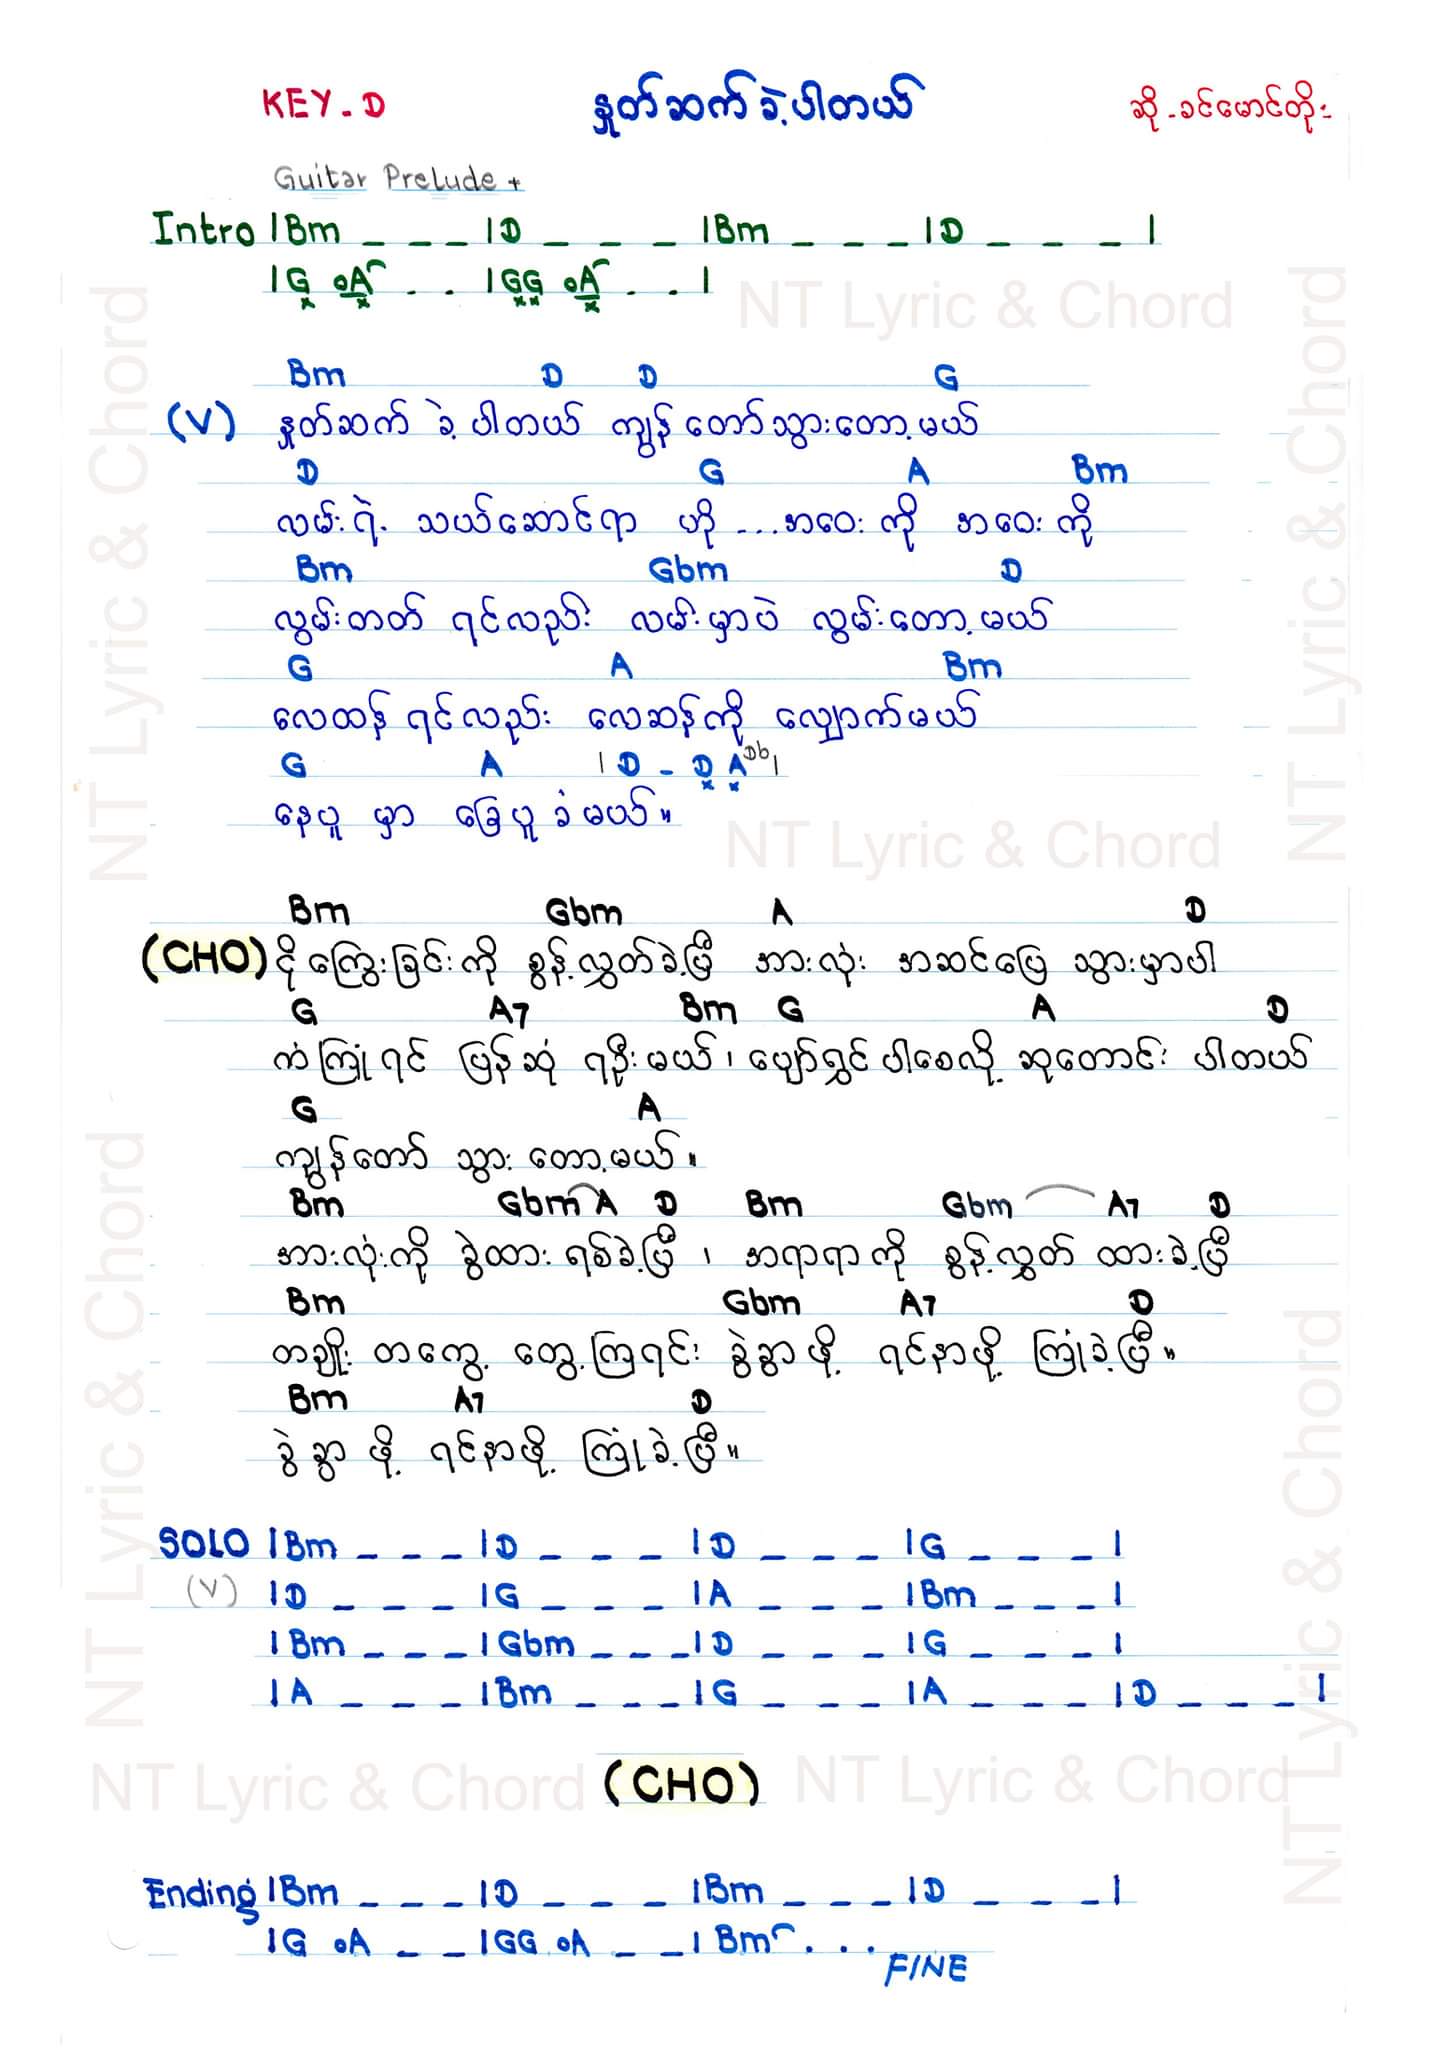 KEY - D နှုတ်ဆက်ခဲ့ပါတယ် ဆို - ခင်မောင်တိုး
Guitar Prelude +
Intro |Bm _ _ _ |D _ _ _ |Bm _ _ _ |D _ _ _ |
|G oA . . |GG oA . . |
Bm D D G
(V) နှုတ်ဆက် ခဲ့ ပါတယ် ကျွန် တော်သွားတော့မယ်
D G A Bm
လမ်းရဲ့ သယ်ဆောင်ရာ ဟို ... အဝေး ကို အဝေး ကို
Bm Gbm D
လွမ်းတတ် ရင်လည်း လမ်းမှာပဲ လွမ်းတော့မယ်
G A Bm
လေထန် ရင်လည်း လေဆန်ကို လျှောက်မယ်
G A | D - D A Db |
နေပူ မှာ ခြေပူ ခံမယ်။
Bm Gbm A D
(CHO) ငိုကြွေးခြင်းကို စွန့်လွှတ်ခဲ့ပြီ အားလုံး အဆင်ပြေ သွားမှာပါ
G A7 Bm G A D
ကံကြုံရင် ပြန်ဆုံ ရဦးမယ်၊ ပျော်ရွှင်ပါစေလို့ ဆုတောင်း ပါတယ်
G A
ကျွန်တော် သွား တော့မယ်။
Bm Gbm A D Bm Gbm A7 D
အားလုံးကို ခွဲထား ရစ်ခဲ့ပြီ ၊ အရာရာကို စွန့်လွှတ် ထားခဲ့ပြီ
Bm Gbm A7 D
တချိုး တကွေ့ တွေ့ကြရင်း ခွဲခွာဖို့ ရင်နာဖို့ ကြုံခဲ့ပြီ။
Bm A7 D
ခွဲခွာ ဖို့ ရင်နာဖို့ ကြုံခဲ့ပြီ။
SOLO |Bm _ _ _ |D _ _ _ |D _ _ _ |G _ _ _ |
(V) |D _ _ _ |G _ _ _ |A _ _ _ |Bm _ _ _ |
|Bm _ _ _ |Gbm _ _ _ |D _ _ _ |G _ _ _ |
|A _ _ _ |Bm _ _ _ |G _ _ _ |A _ _ _ |D _ _ _ |
(CHO)
Ending |Bm _ _ _ |D _ _ _ |Bm _ _ _ |D _ _ _ |
|G oA _ _ |GG oA _ _ | Bm . . .
FINE
NT Lyric & Chord
NT Lyric & Chord
NT Lyric & Chord
NT Lyric & Chord
NT Lyric & Chord
NT Lyric & Chord
NT Lyric & Chord
NT Lyric & Chord